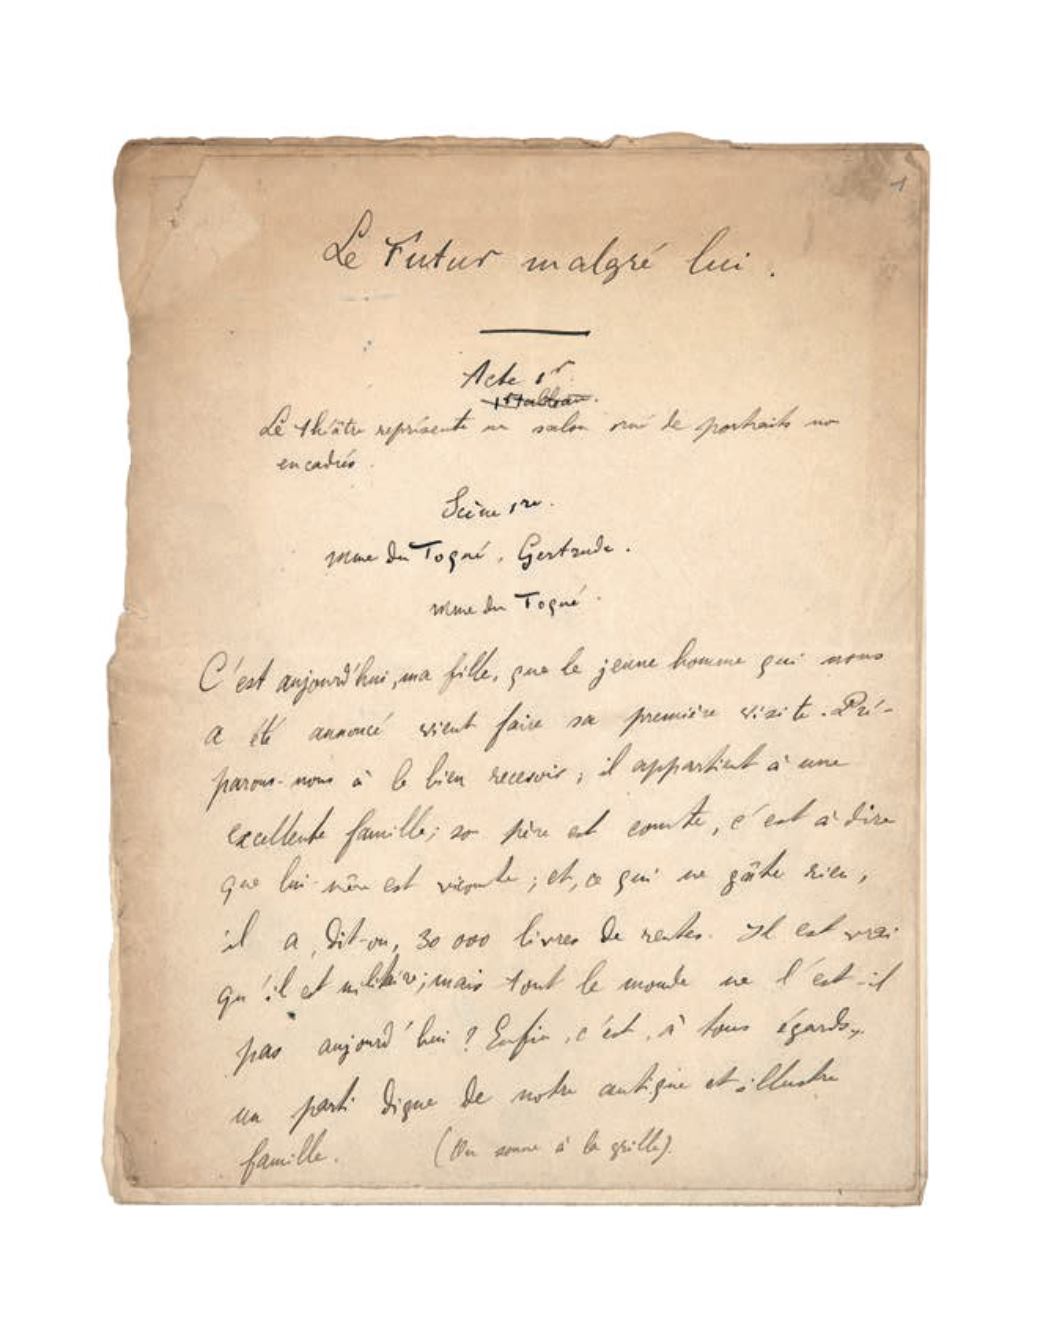 1
Le Futur malgré lui.
Acte 1er
1er tableau.
Le théâtre représente un salon orné de portraits non
encadrés.
Scène 1re.
Mme du Toqué, Gertrude.
Mme du Toqué.
C'est aujourd'hui, ma fille, que le jeune homme qui nous
a été annoncé vient faire sa première visite. Pré-
parons-nous à le bien recevoir; il appartient à une
excellente famille; son père est comte, c'est à dire
que lui-même est vicomte; et, ce qui ne gâte rien,
il a, dit-on, 30 000 livres de rentes. Il est vrai
qu'il est militaire; mais tout le monde ne l'est-il
pas aujourd'hui? Enfin, c'est, à tous égards,
un parti digne de notre antique et illustre
famille. (On sonne à la grille).